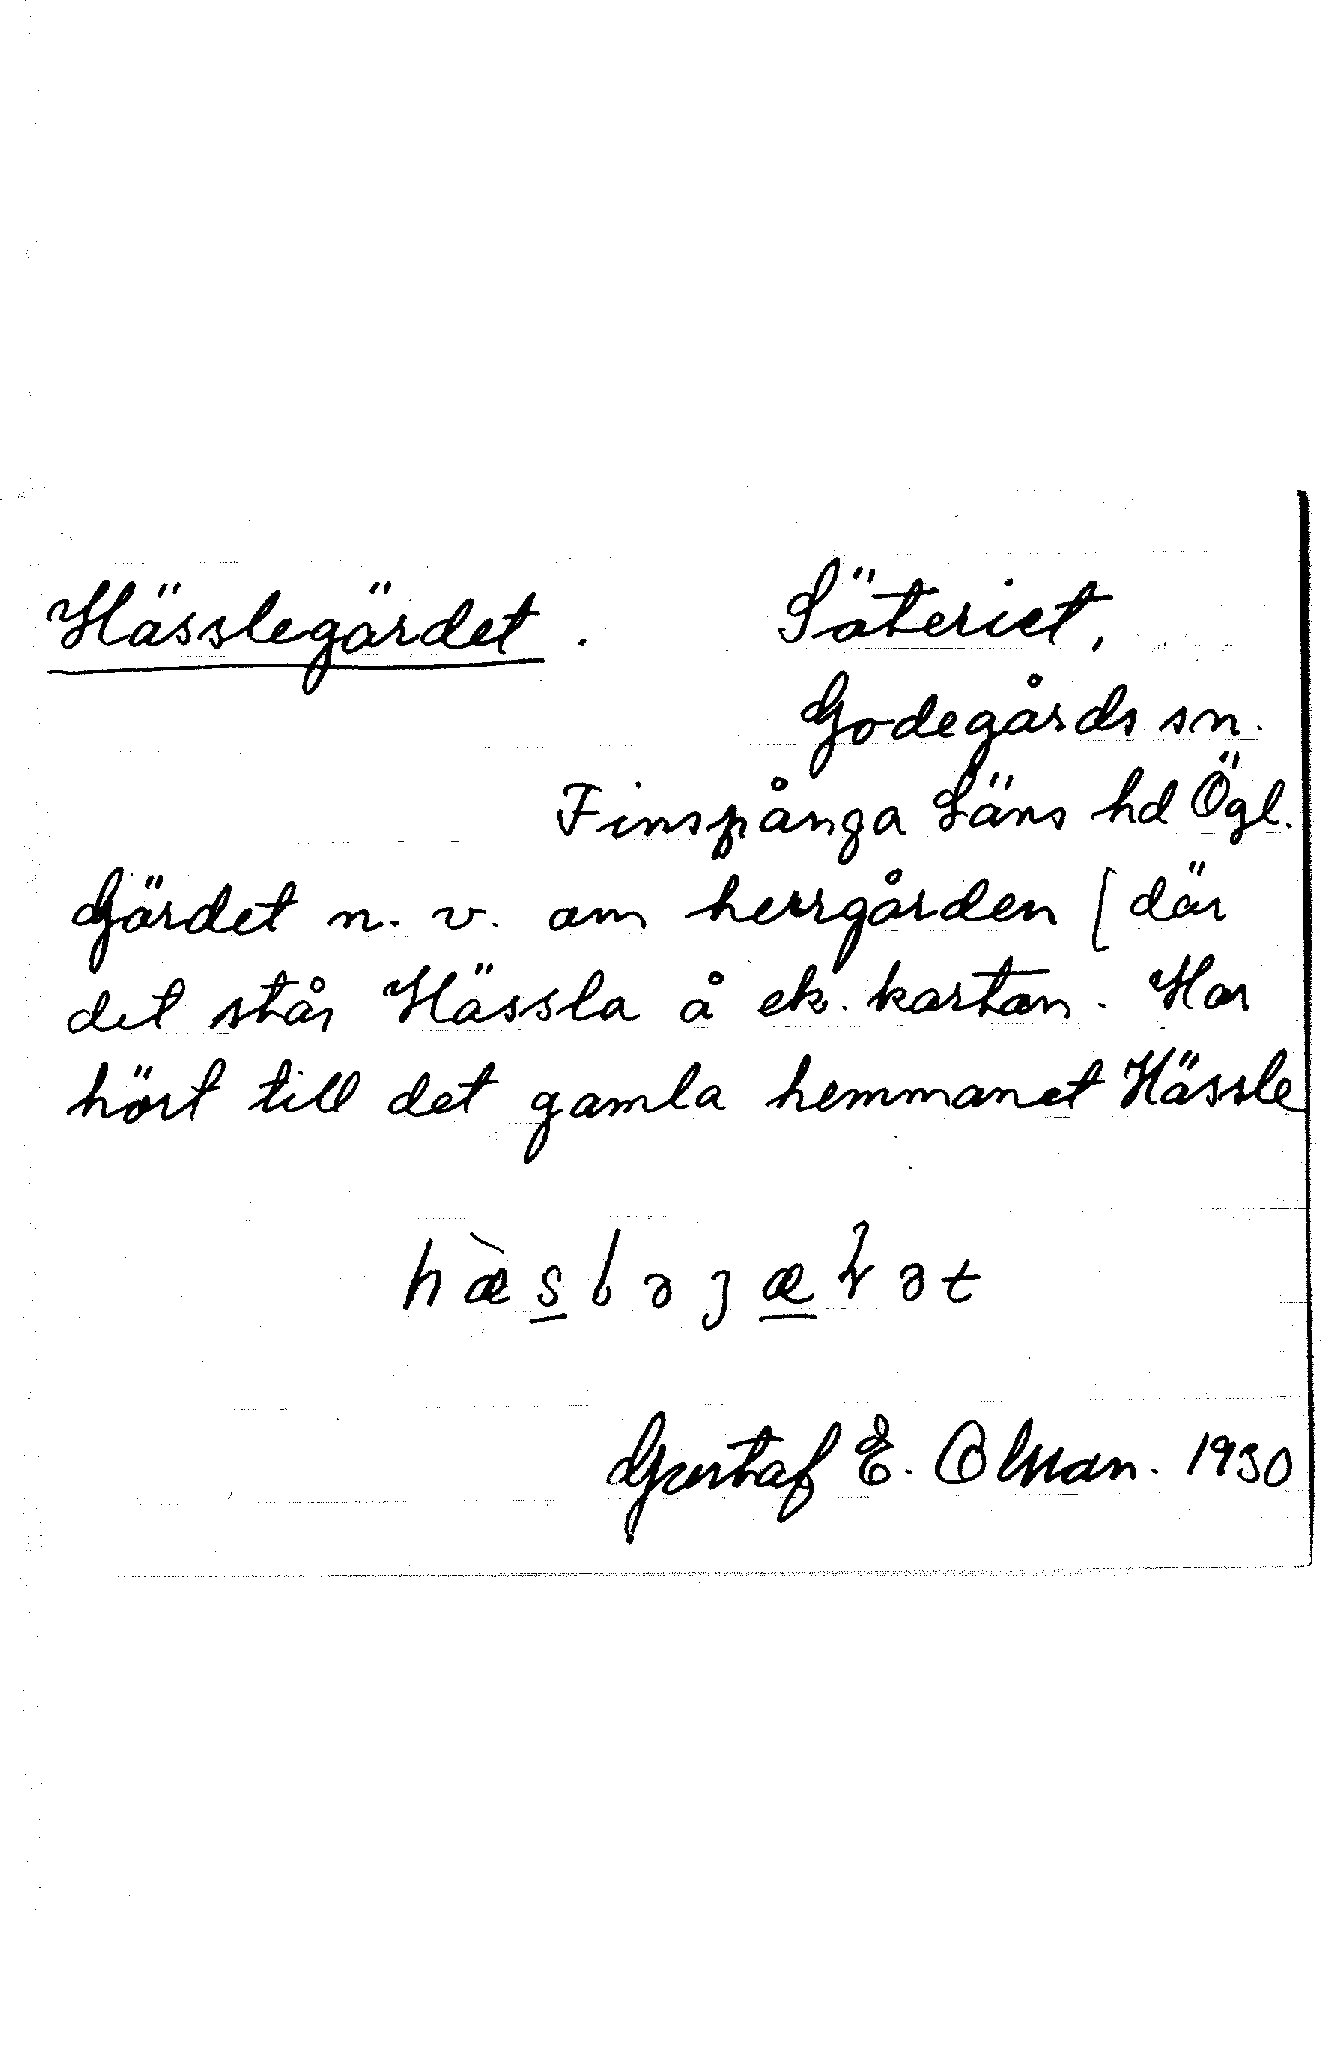 Hässlegärdet. Säteriet,
Godegårds sn.
Finspånga Läns hd Ögl.
Gärdet n. v. om herrgården (där
det står Hässla å ek. kartan. Har
hört till det gamla hemmanet Hässle
Gustaf E. Olsson. 1930